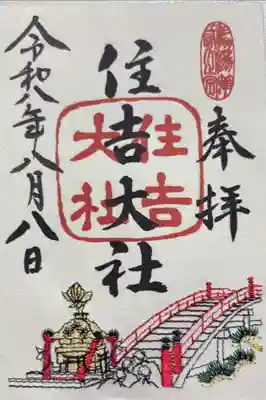 奉拝
住吉大社
住吉大社
令和八年八月八日